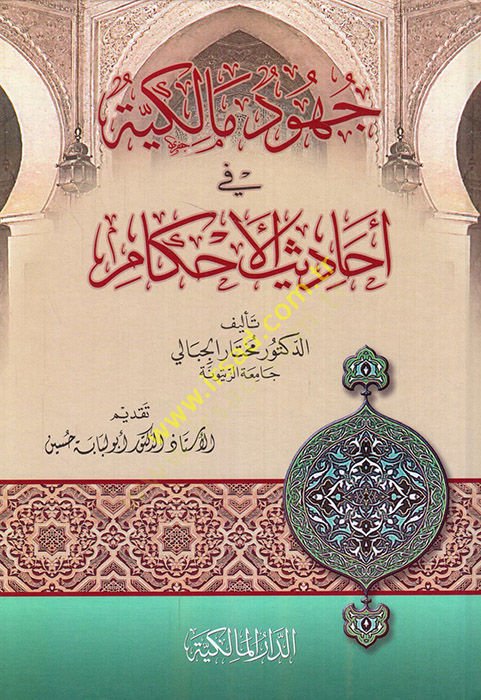 جُهُودُ مَالِكِيَّةٌ
فِي
أَحَادِيثِ الأَحْكَامِ
تَأليف
الدّكتور مُختار الجبالي
جَامِعَة الزّيتونَة
تَقديم
الأستاذ الدكتور أبو لبابة حسين
الدَّارُ المَالِكِيَّة